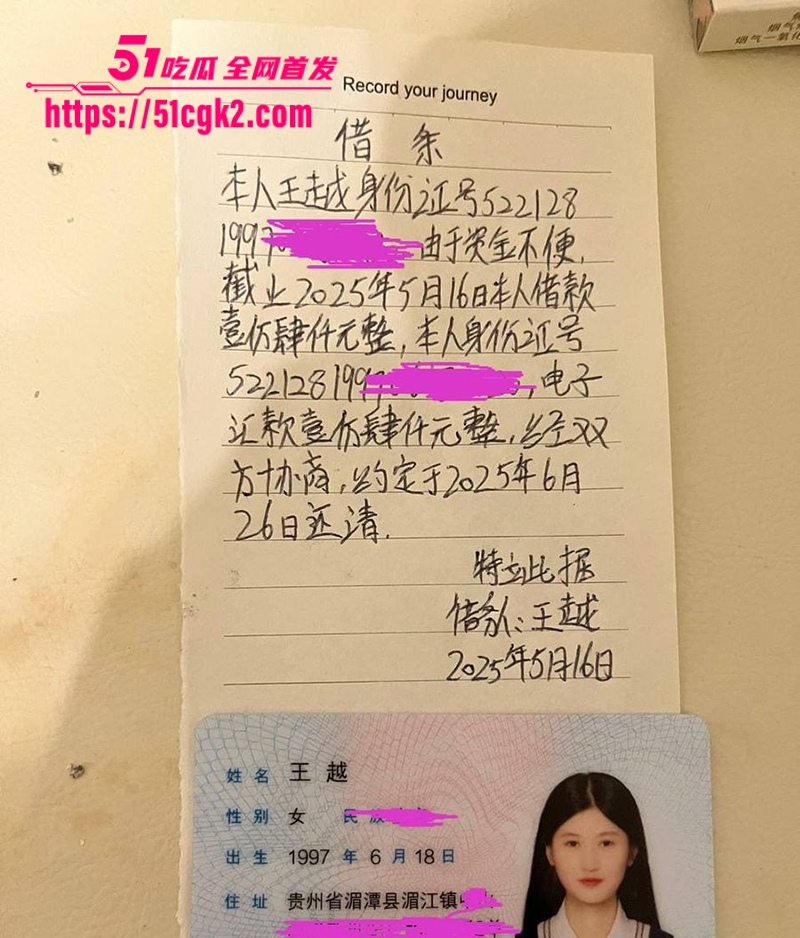 51吃瓜 全网首发
https://51cgk2.com
Record your journey
借条
本人王越身份证号522128
1997 由于资金不便,
截止2025年5月16日本人借款
壹仟肆仟元整,本人身份证号
522128199 ,电子
汇款壹仟肆仟元整,经双
方协商,约定于2025年6月
26日还清.
特立此据
借款人:王越
2025年5月16日
姓名 王越
性别 女 民族
出生 1997 年 6 月 18 日
住址 贵州省湄潭县湄江镇